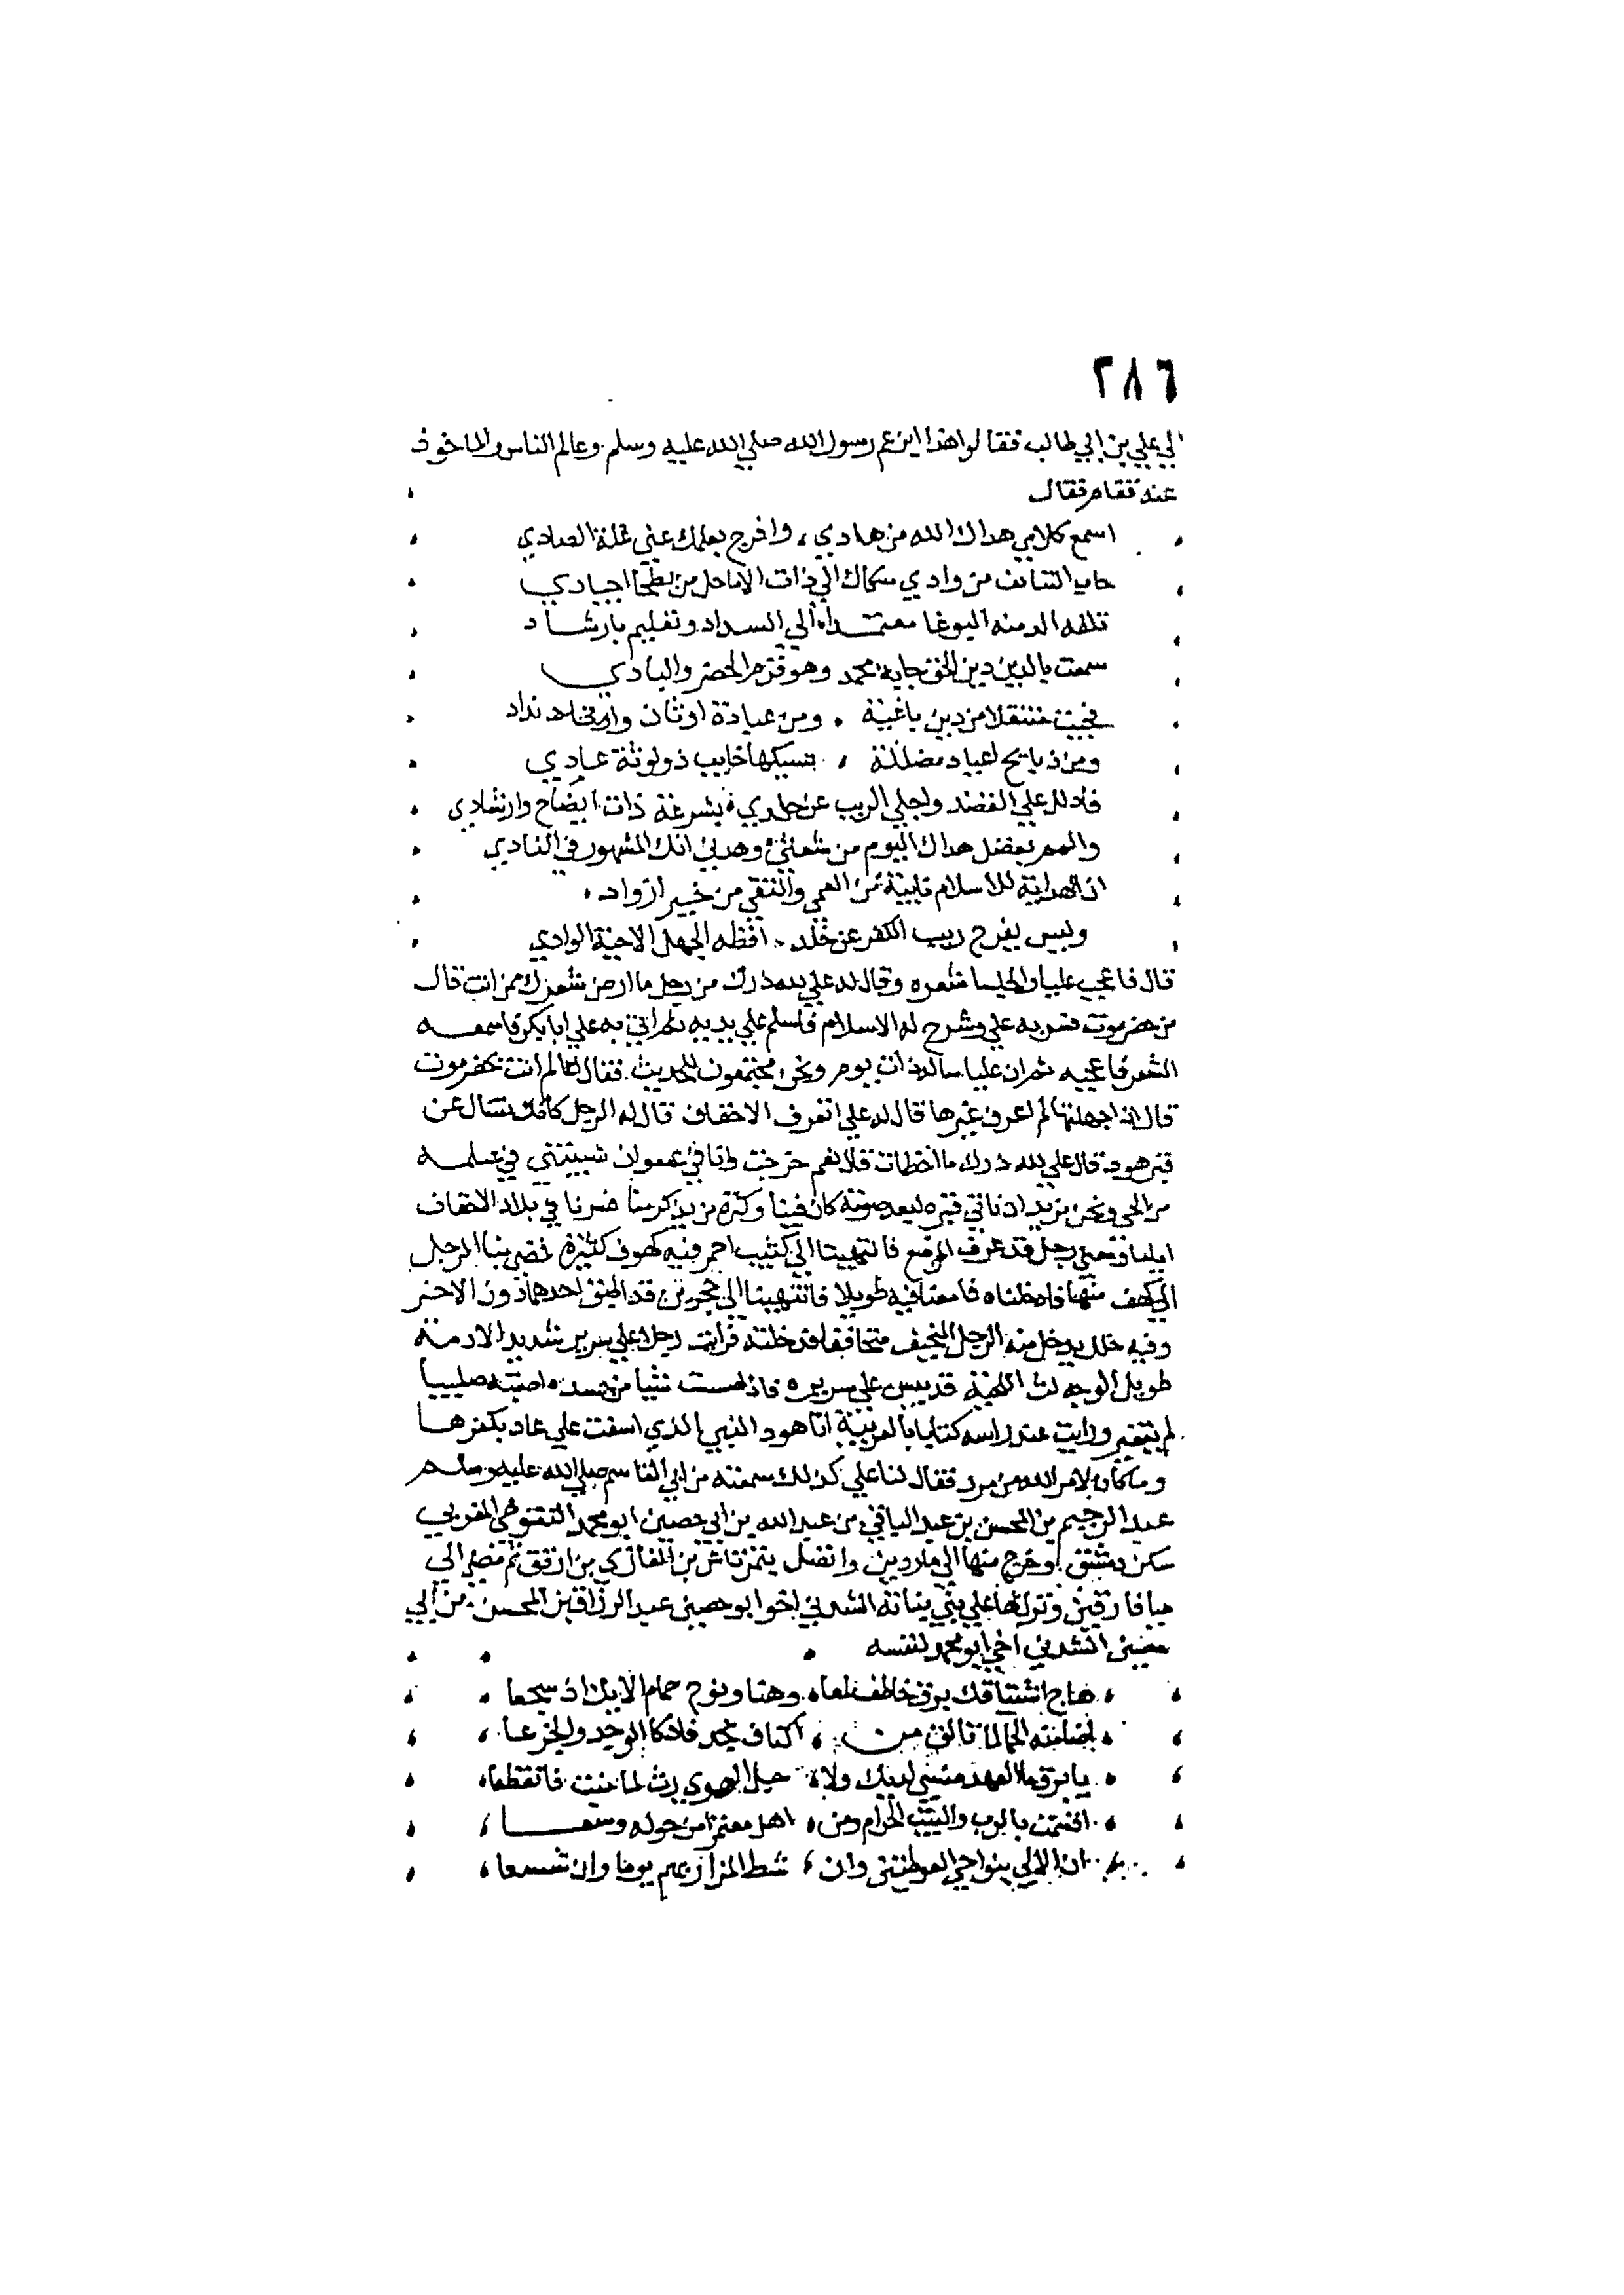 ٢٨٦
الي علي بن ابي طالب فقالوا هذا ابن عم رسول الله صلي الله عليه وسلم وعالم الناس والماخوذ
عنه فقام فقال
اسمع كلامي هداك الله من هادي ، وافرج بعلمك عني غلة الصادي
جاب التنايف من وادي سكاك الي ذات الاماحل من بطحا اجيادي
تلفه الدمنه البوغا معتمدا الي السداد وتعليم بارشاد
سمعت بالدين دين الحق جابه محمد وهو قرم الحضر والبادي
فجيت منتقلا من دين باغية . ومن عبادة اوثان وانداد
ومن ذبايح لعياد مضللة ، نسيكها خايب ذو لوثة عادي
فادلل علي القصد واجلي الريب عن خلدي بشرعة ذات ايضاح وارشادي
والمم بفضل هداك اليوم من شعثي وهدني انك المشهور في النادي
ان الهداية للاسلام نايبة عن العمي والتقي من خير ازواد .
وليس يفرج ريب الكفر عن خلد . افظه الجهل الا حية الوادي
قال فاعجب عليا والجلسا شعره وقال له علي لله درك من رجل ما ارصن شعرك ممن انت قال
من حضرموت فسر به علي وشرح له الاسلام فاسلم علي يديه ثم اتي به علي ابا بكر فاسمعه
الشعر فاعجبه ثم ان عليا ساله ذات يوم ونحن مجتمعون للحديث فقال اعالم انت بحضرموت
قال اذا جهلتها لم اعرف غيرها قال له علي اتعرف الاحقاف قال له الرجل كانك تسال عن
قبر هود قال علي لله درك ما اخطات قال نعم خرجت وانا في عنفوان شبيبتي في غلمه
من الحي ونحن نريد ان ناتي قبره لبعد صوته كان فينا وكثرة من يذكر منا فسرنا في بلاد الاحقاف
اياما ومعنا رجل قد عرف الموضع فانتهينا الي كثيب احمر فيه كهوف كثيرة فمضي بنا الرجل
الي كهف منها فدخلناه فامعنا فيه طويلا فانتهينا الي حجرين قد اطبق احدهما دون الاخر
وفيه خلل يدخل منه الرجل النحيف متجانفا فدخلته فرايت رجلا علي سرير شديد الادمة
طويل الوجه كث اللحية قد يبس علي سريره فاذا مسست شيا من جسده اصبته صليبا
لم يتغير ورايت عند راسه كتابا بالعربية انا هود النبي الذي اسفت علي عاد بكفرها
وما كان لامر الله من مرد فقال لنا علي كذلك سمعته من ابي القاسم صلي الله عليه وسلم
عبد الرحيم بن المحسن بن عبد الباقي بن عبد الله بن ابي حصين ابو محمد التنوخي المغربي
سكن دمشق وخرج منها الي ماردين واتصل بتمرتاش بن الغازي بن ارتق ثم مضي الي
ميافارقين وتولي بها علي بني بناته انشدني اخوا ابو حصين عبد الرزاق بن المحسن بن ابي
حصين انشدني اخي ابو محمد لنفسه
هاج اشتياقك برق خاطف لمعا . وهنا ونوح حمام الايك اذ سجعا
اضا منه الحمي لما تالق من . اكناف نجد فاذكا الوجد والجزعا
يا برق ما العهد منسي لديك ولا . حبل الهوي رث لما غبت فانقطعا
اقسمت بالرب والبيت الحرام ومن ، اهل معتمرا من حوله وسعا
ان الالي بنواحي الغوطتين وان ، شط المزار بهم يوما وان شسعا